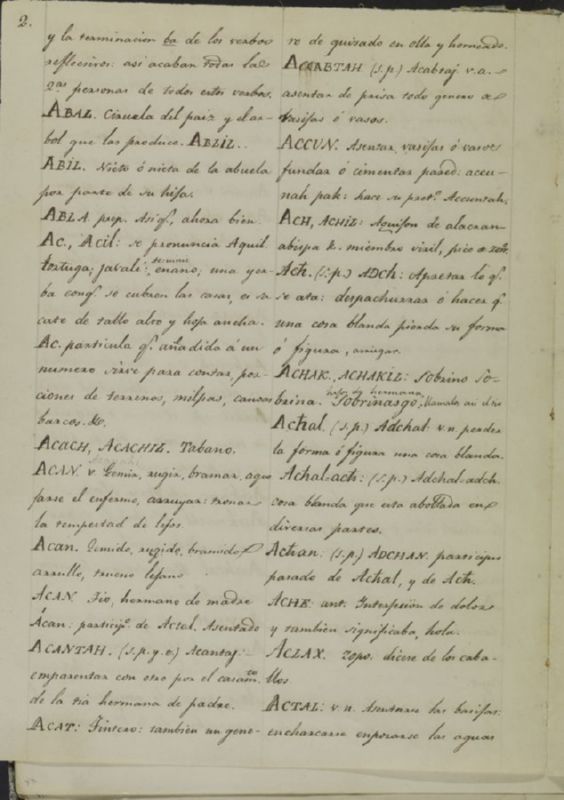 2.
y la terminacion ba de los verbos
reflecsivos: asi acaban todas las
2as personas de todos estos verbos.
ABAL. Ciruela del paiz y el ar-
bol que las produce. ABLIL.
ABIL. Nieto ó nieta de la abuela
por parte de su hija.
ABLA. prep. Asi qe, ahora bien.
AC, ACIL: se pronuncia Aquil
tortuga; javalí, enano; una yer-
ba con qe se cubren las casas, es sa
cate de tallo alto y hoja ancha.
AC. particula qe añadida á un
numero sirve para contar, por-
ciones de terrenos, milpas, canoas
barcos. &c.
ACACH, ACACHIL. Tabano.
ACAN. v. Gemir, rugir, bramar, que
jarse el enfermo, arruyar: tronar
la tempestad de lejos.
Acan. Gemido, rugido, bramido
arrullo, trueno lejano
ACAN. Tio, hermano de madre
Acan: particip.o de Actal. Asentado
ACANTAH. (s.p.y.e.) Acantaj:
emparentar con otro por el casamto
de la tia hermana de padre.
ACAT: Tintero: tambien un gene-
ro de guisado en olla y horneado.
ACCABTAH (s.p.) Acabtaj v.a.
asentar de prisa todo genero de
vasijas ó vasos.
ACCUN. Asentar, vasijas ó vasos
fundar ó cimentar pared: accu-
nah pak: hace su pret.o Accuntah.
ACH, ACHIL: Aguijon de alacran
abispa &. miembro viril, pico de
Ach. (s.p.) ADCH: Apretar lo qe
se ata: despachurrar ó hacer qe
una cosa blanda pierda su forma
ó figura, amugar.
ACHAK, ACHAKIL: Sobrino So-
brina. Sobrinasgo,
Achal. (s.p.) Adchal: v.n. perder
la forma ó figura una cosa blanda.
Achal-ach: (s.p.) Adchal-adch.
cosa blanda que esta abollada en
diversas partes.
Achan: (s.p.) ADCHAN. participio
pasado de Achal, y de Ach.
ACHE: ant. Interjecion de dolor
y tambien significaba, hola.
ACLAX. Zopo: dicese de los caba-
llos.
ACTAL: v.n. Asentarse las basijas:
encharcarse emposarse las aguas